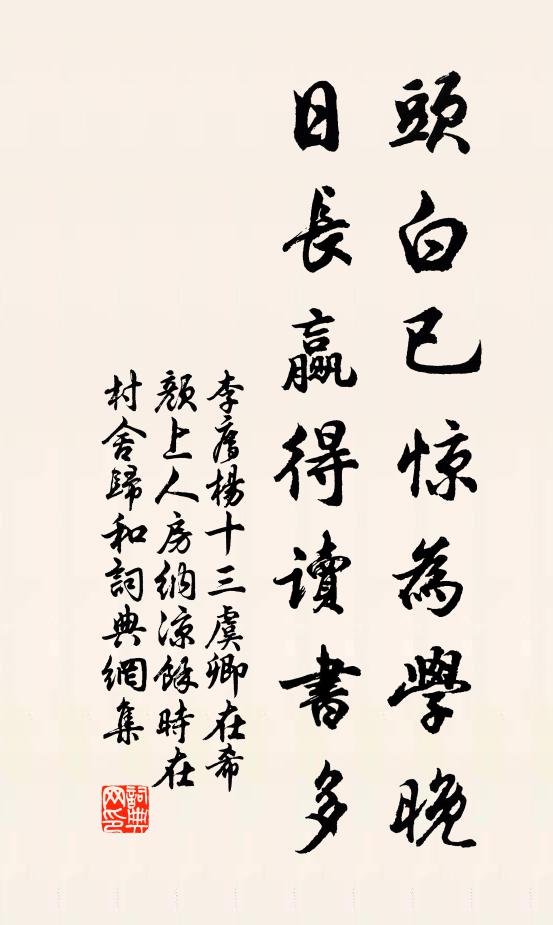 頭白已惊為學晚
日長贏得讀書多
李膺楊十三虞卿在希
顏上人房納涼餘時在
村舍歸和詞典網集
詞典网印